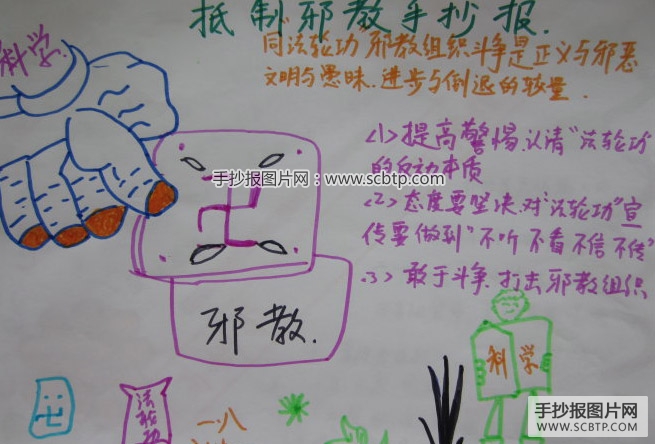 抵制邪教手抄报.
科学.
同"法轮功"邪教组织斗争是正义与邪恶
文明与愚昧.进步与倒退的较量.
<1>提高警惕.认请"法轮功"
的反动本质
<2>态度要坚决.对"法轮功"宣
传要做到"不听不看不信不传"
<3>敢于斗争.打击邪教组织
手抄报图片网:www.scbtp.com
邪教.
科学
法轮功
一·八
手抄报图片网
WWW.SCBTP.COM